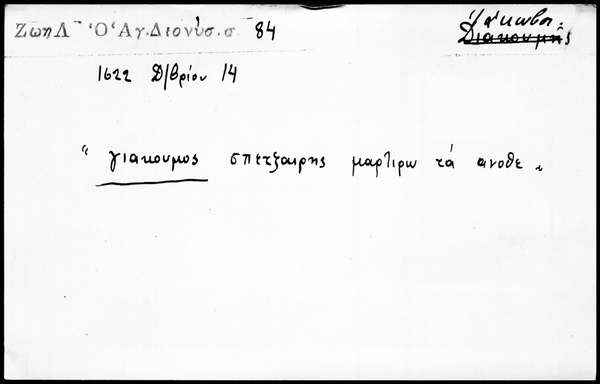 Ζώη Λ. Ὁ Ἅγ. Διονύσ. σ. 84
Ἰάκωβος
Διακουμῆς
1622 Δ/βρίου 14
"γιακουμος σπετζαιρης μαρτιρω τά ανοθε"